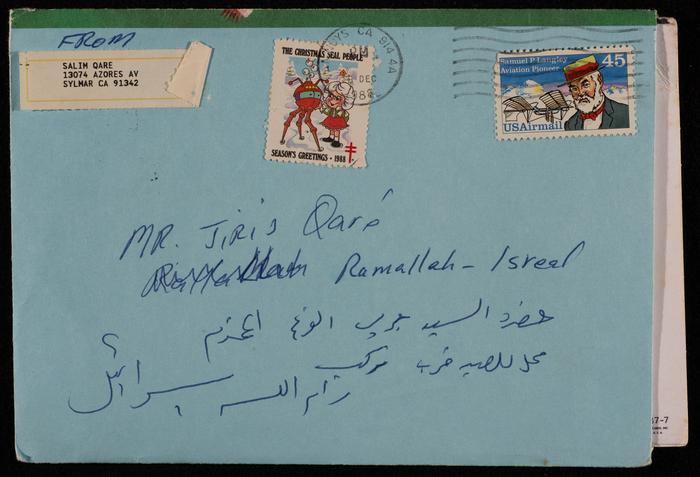 FROM
SALIM QARE
13074 AZORES AV
SYLMAR CA 91342
THE CHRISTMAS SEAL PEOPLE
SEASON'S GREETINGS • 1988
CA 914
PM
DEC
Samuel P. Langley
Aviation Pioneer
45
USAirmail
MR. JiRiS Qare
Ramallah - Isreal
حضرة السيد جريس المحترم
رام الله
37-7